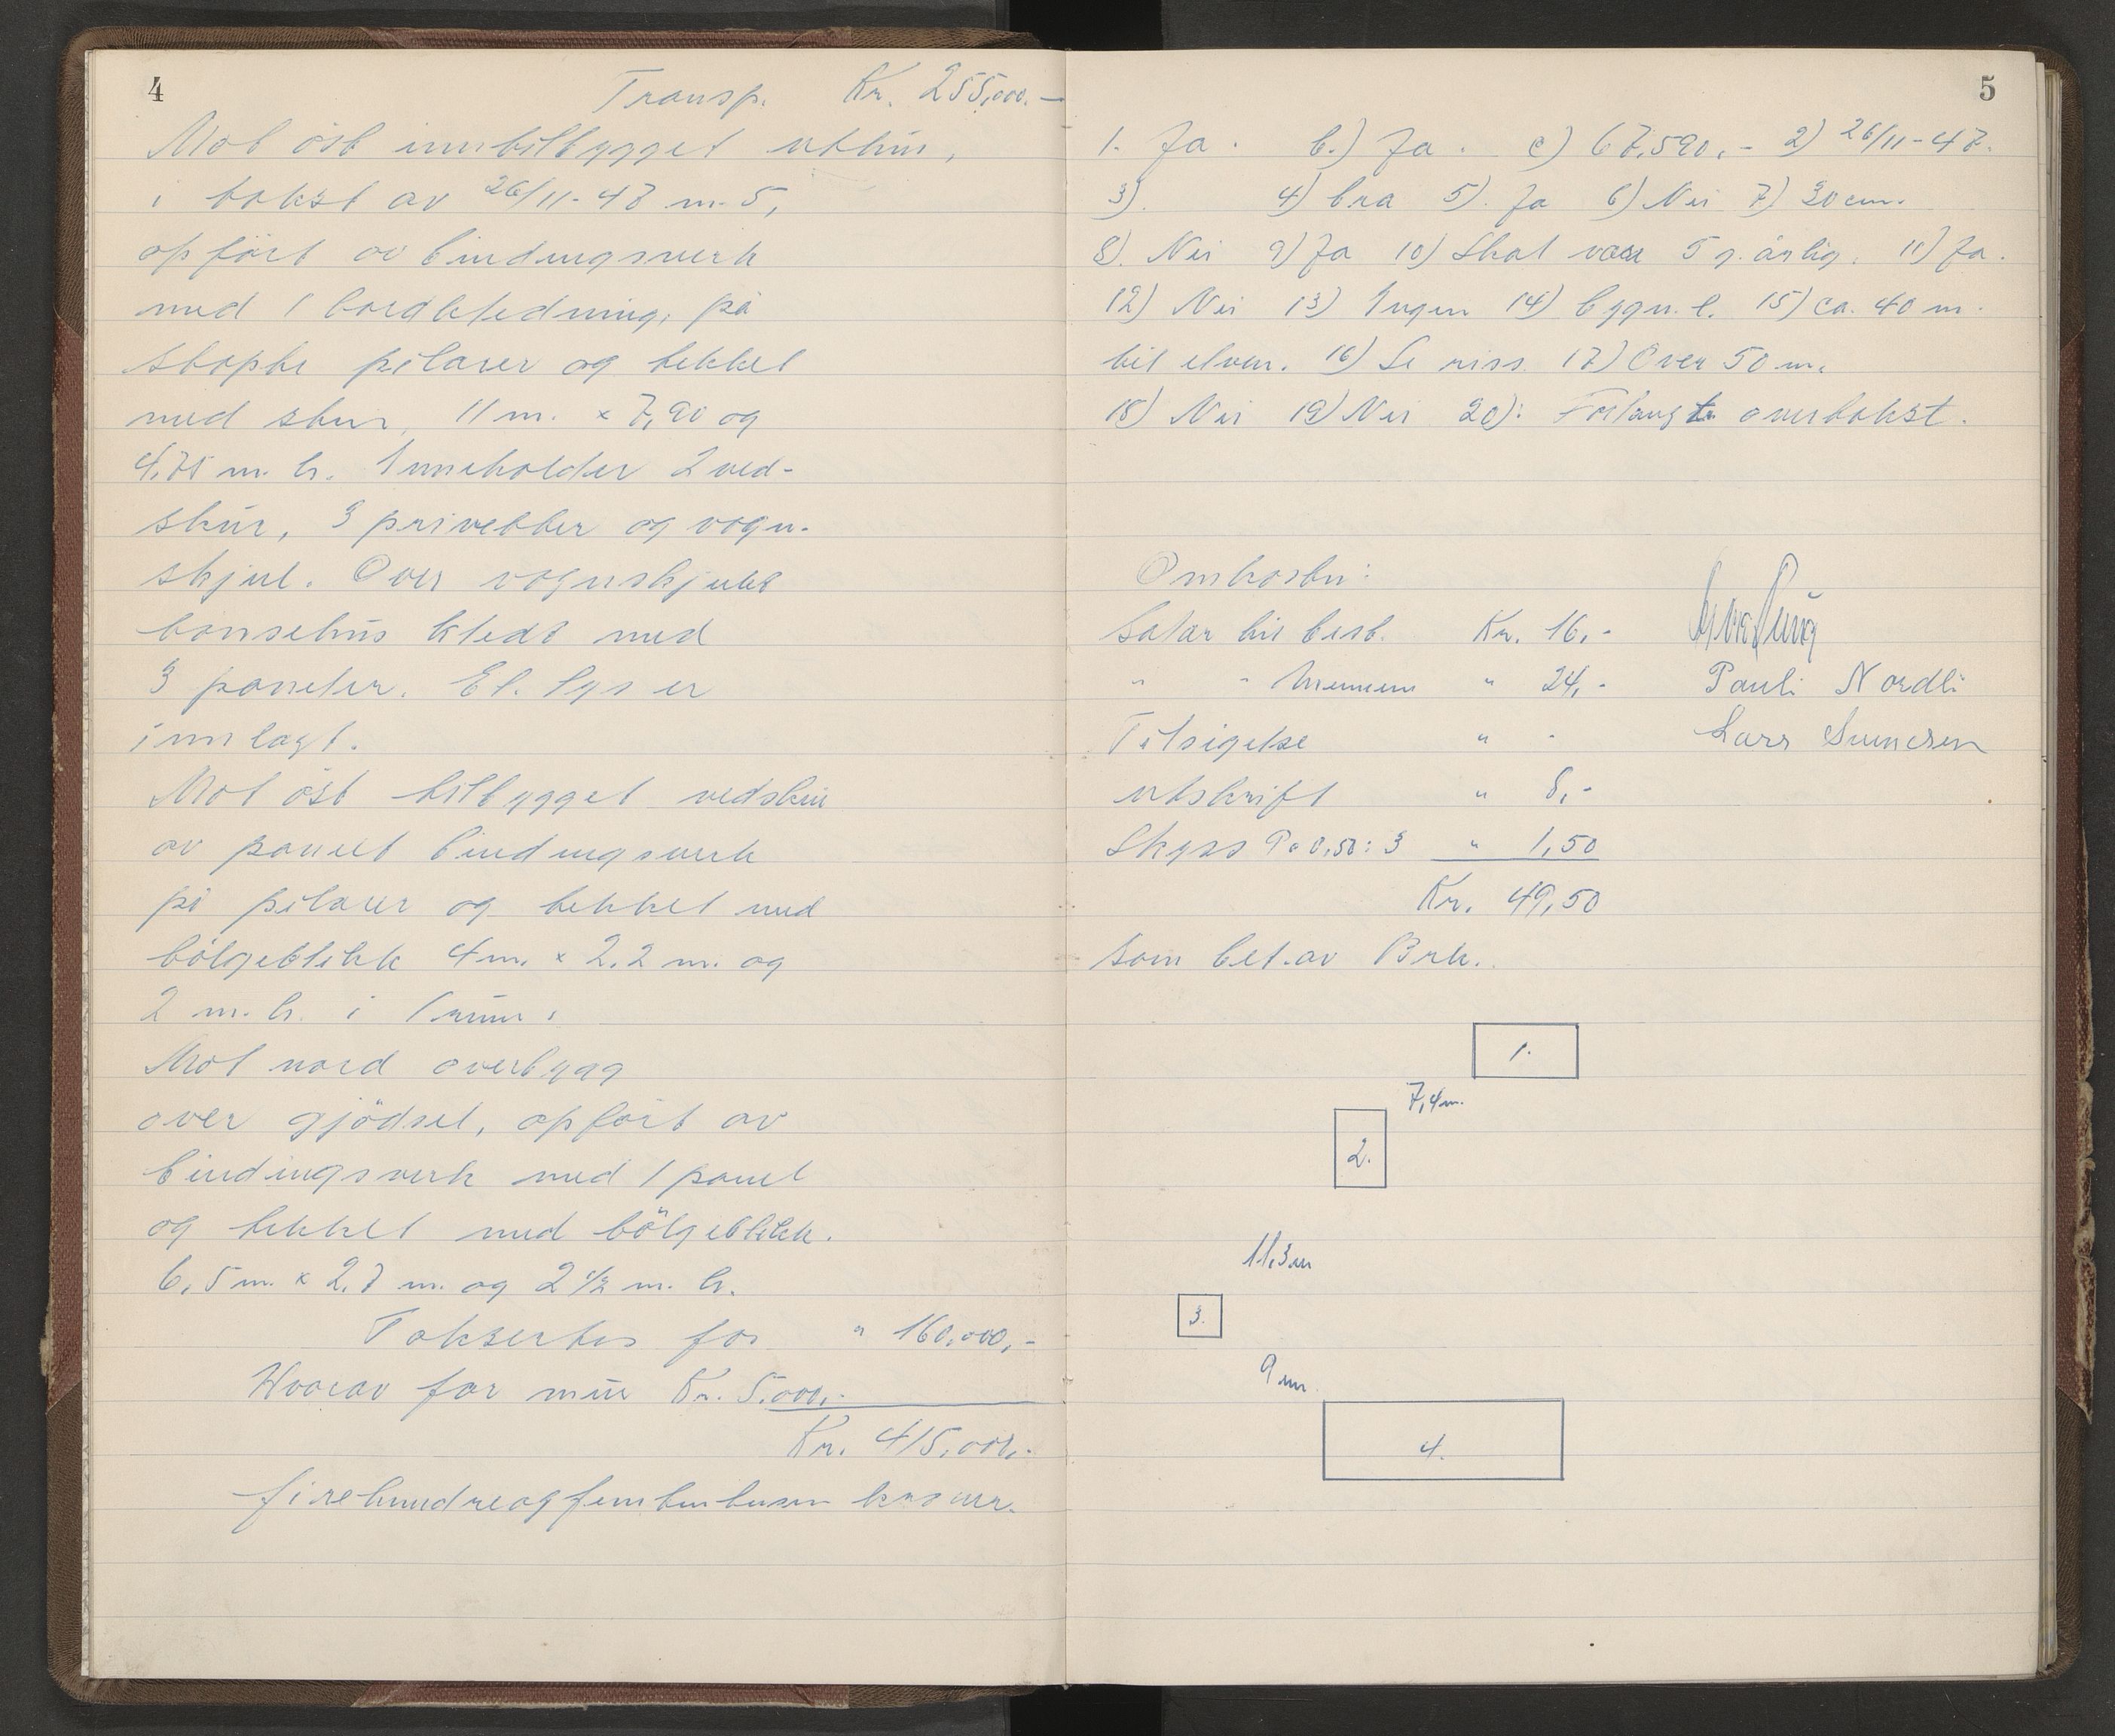 4
Transp. Kr. 255,000.-
Mot öst innbilbygget uthus,
i takst av 26/11-47 m. 5,
opfört av bindingsverk
med 1 bordkledning, på
støpte pilarer og tekket
med skur, 11 m. x 7,90 og
4,75 m. h. Inneholder 2 ved-
skur, 3 privetter og vogn-
skjul. Over vognskjulet
hønsehus kledt med
3 paneler. El. lys er
innlagt.
Mot öst tilbygget vedskur
av panelt bindingsverk
på pilarer og tekket med
bölgeblikk 4 m. x 2,2 m. og
2 m. h. i 1 rum.
Mot nord overbygg
over gjödsel, opfört av
bindingsverk med 1 panel
og tekket med bölgeblikk.
6,5 m. x 2,7 m. og 2 1/2 m. h.
Taksertes for " 160,000,-
Hvorav for mur Kr. 5.000,-
Kr. 415,000,-
firehundreogfemtentusen kroner.
5
1. Ja. b.) Ja. c) 67,590,- 2) 26/11-47.
3). 4) bra 5). Ja 6) Nei 7) 30 cm.
8). Nei 9) Ja 10) Skal være 5 g. årlig. 11) Ja.
12) Nei 13) Ingen 14) bygn. l. 15) ca. 40 m.
til elven. 16) Se riss. 17) Over 50 m.
18) Nei 19) Nei 20): Forlangte overtakst.
Omkostn:
Salær til best. Kr. 16,-
" " mennene " 24,- Pauli Nordli
Tilsigelse " - Lars
utskrift " 8,-
Skyss På 0,50: 3 " 1,50
Kr. 49,50
som bet. av Brk.
1.
7,4 m.
2.
11,3 m
3.
9 m.
4.